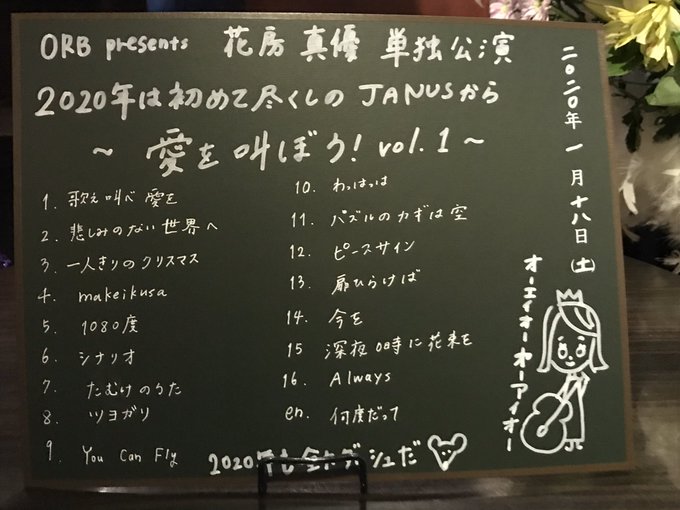 ORB presents 花房真優 単独公演
2020年は初めて尽くしの JANUSから
～ 愛を叫ぼう! vol.1 ～
1. 歌え叫べ愛を
2. 悲しみのない世界へ
3. 一人きりのクリスマス
4. makeikusa
5. 1080度
6. シナリオ
7. たむけのうた
8. ツヨガリ
9. You Can Fly
10. わっはっは
11. パズルのカギは空
12. ピースサイン
13. 扉ひらけば
14. 今を
15 深夜0時に花束を
16. Always
en. 何度だって
2020年も全力ダッシュだ
二〇二〇年一月十八日(土)
オーエイオーオーアイオー